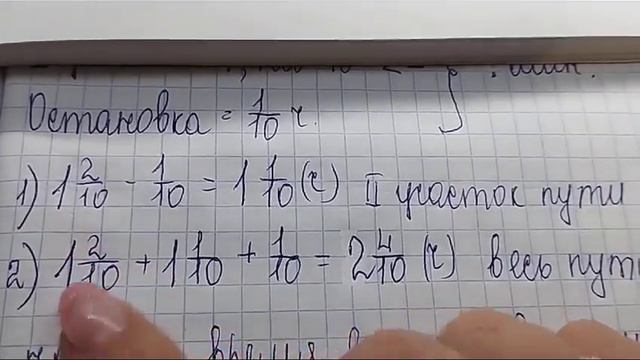 Остановка = 1/10 ч.
1) 1 2/10 - 1/10 = 1 1/10 (ч) II участок пути
2) 1 2/10 + 1 1/10 + 1/10 = 2 4/10 (ч) весь пут